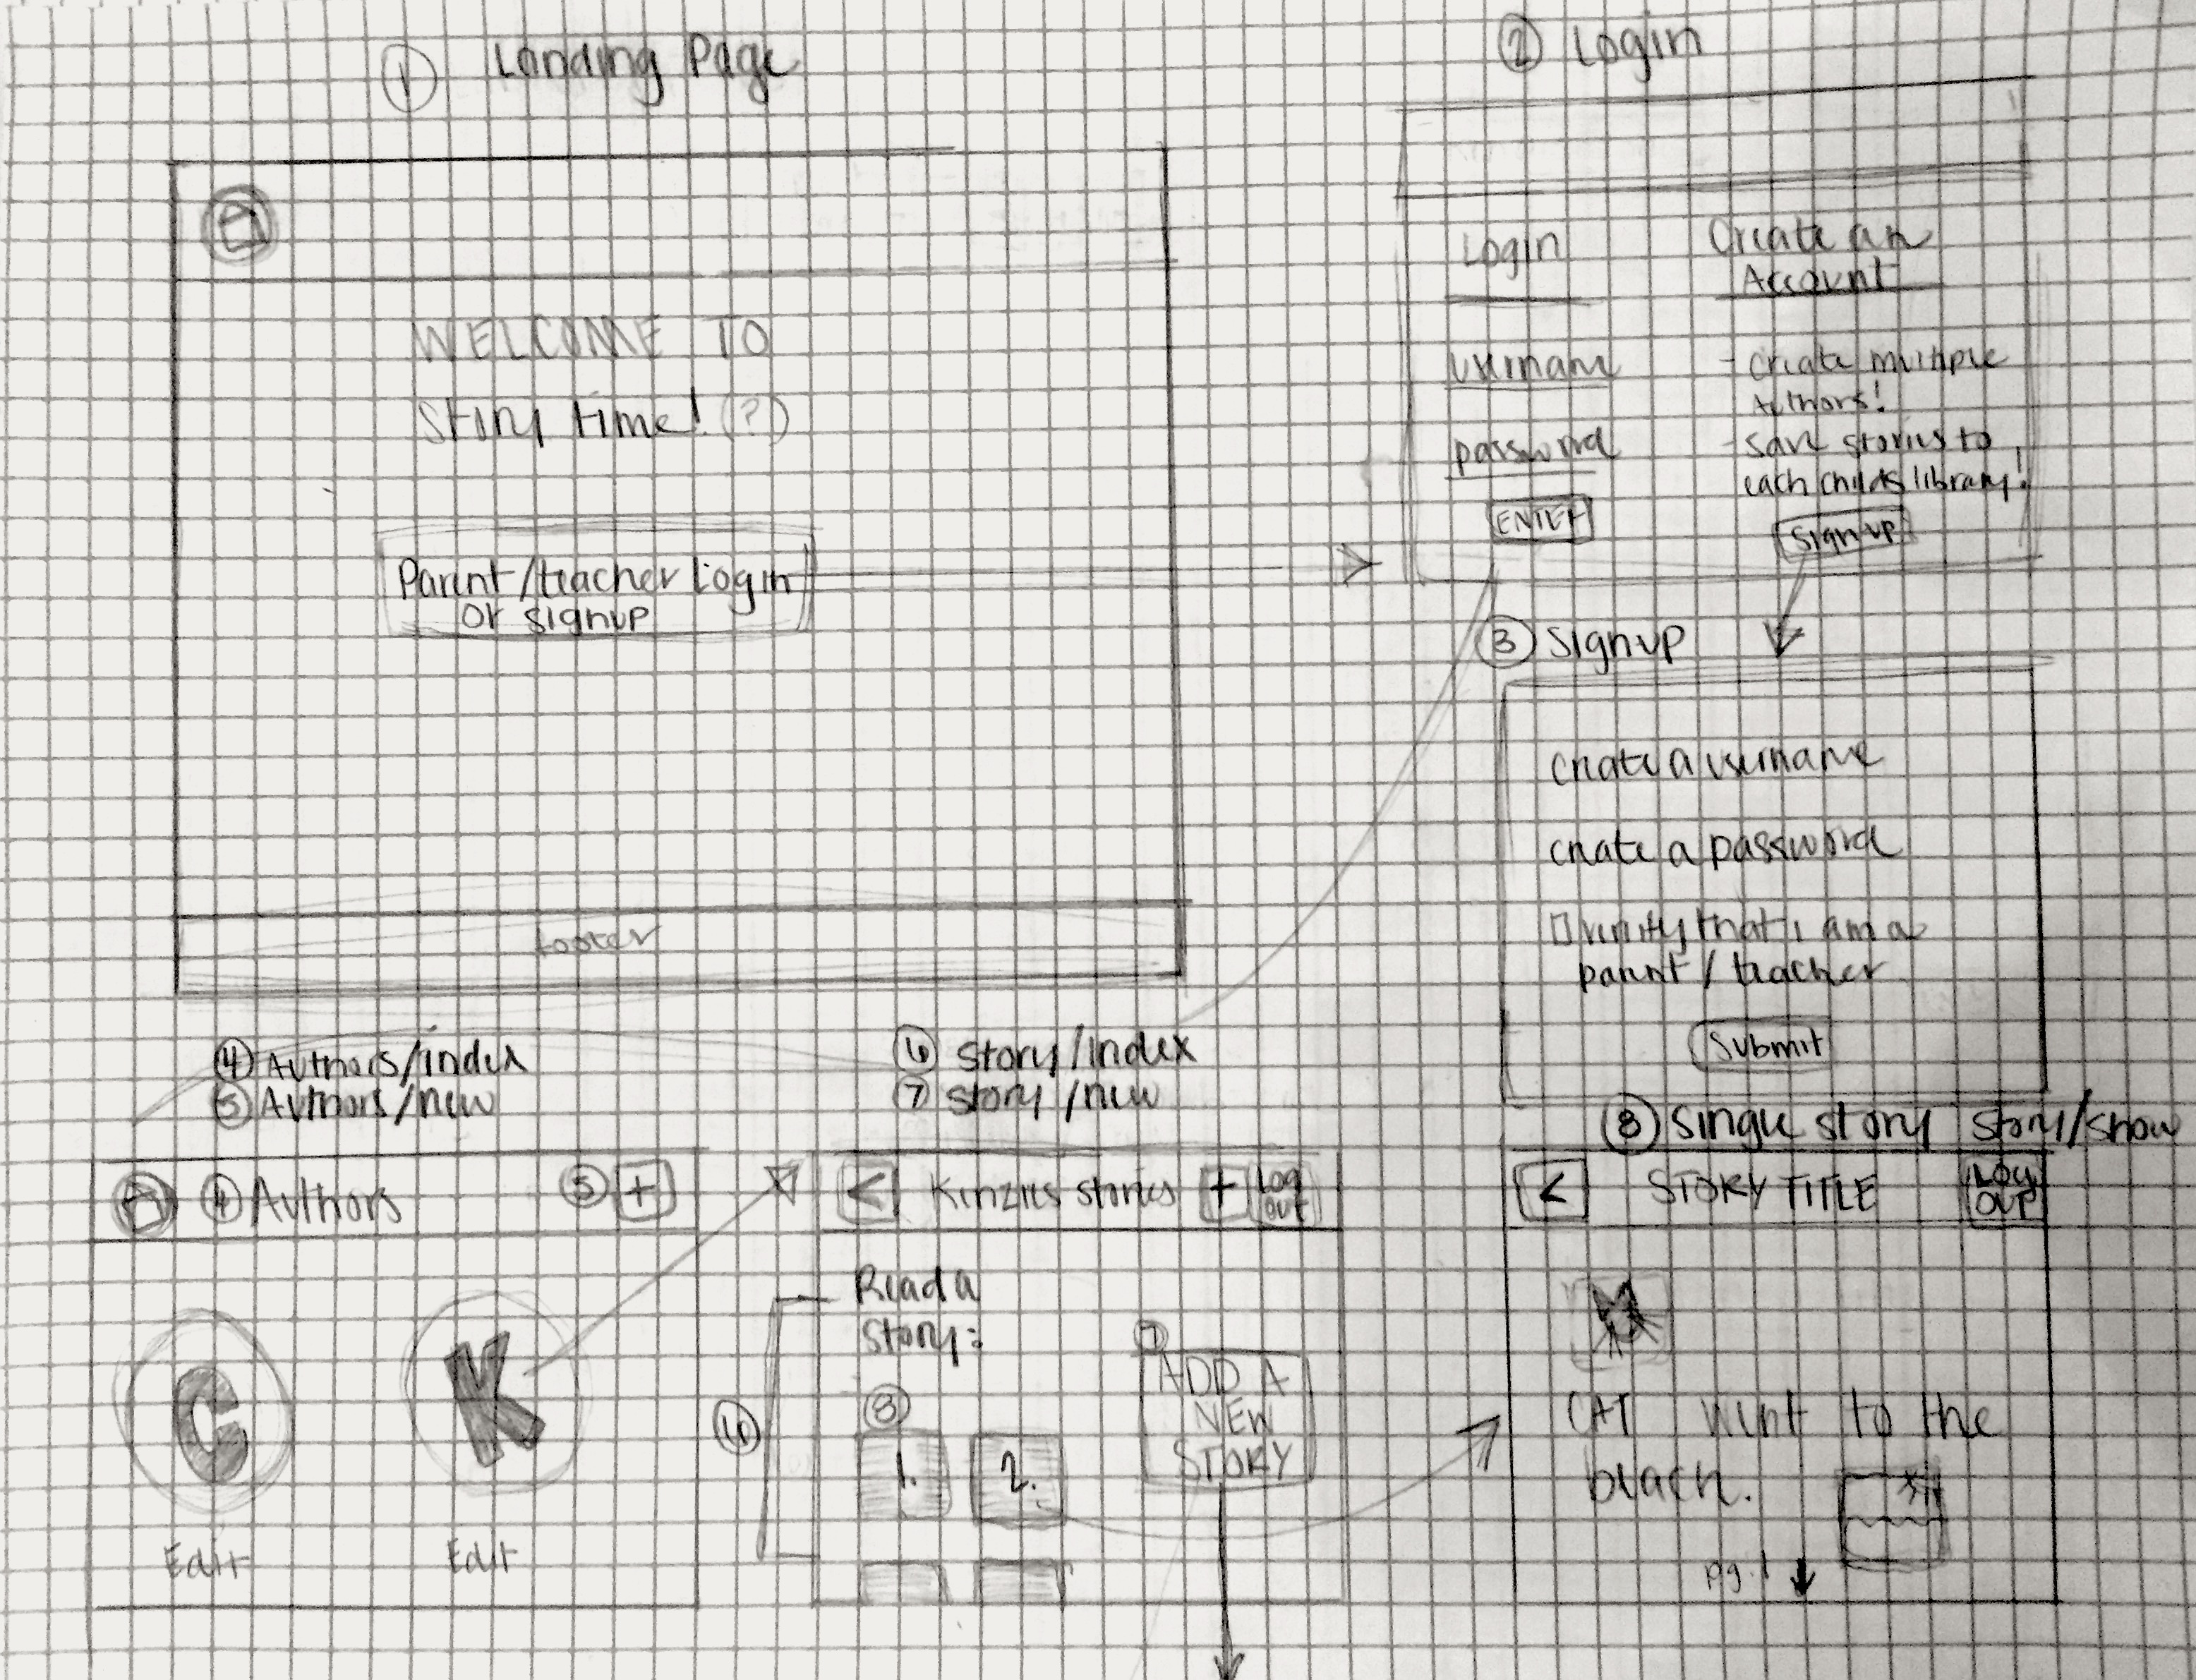 ① Landing Page
WELCOME TO
Story time! (?)
Parent/teacher Login
or signup
footer
② Login
Login
username
password
ENTER
Create an
Account
- create multiple
Authors!
- save stories to
each childs library!
Sign up
③ Signup
create a username
create a password
verify that i am a
parent / teacher
Submit
④ Authors/index
⑤ Authors/new
④ Authors ⑤ +
C K
Edit Edit
⑥ Story/index
⑦ story/new
< Kinzies stories + LOG
OUT
Read a
story:
⑥
⑧
1. 2.
⑦
ADD A
NEW
STORY
⑧ Single story story/show
< STORY TITLE LOG
OUT
CAT went to the
beach.
pg. 1